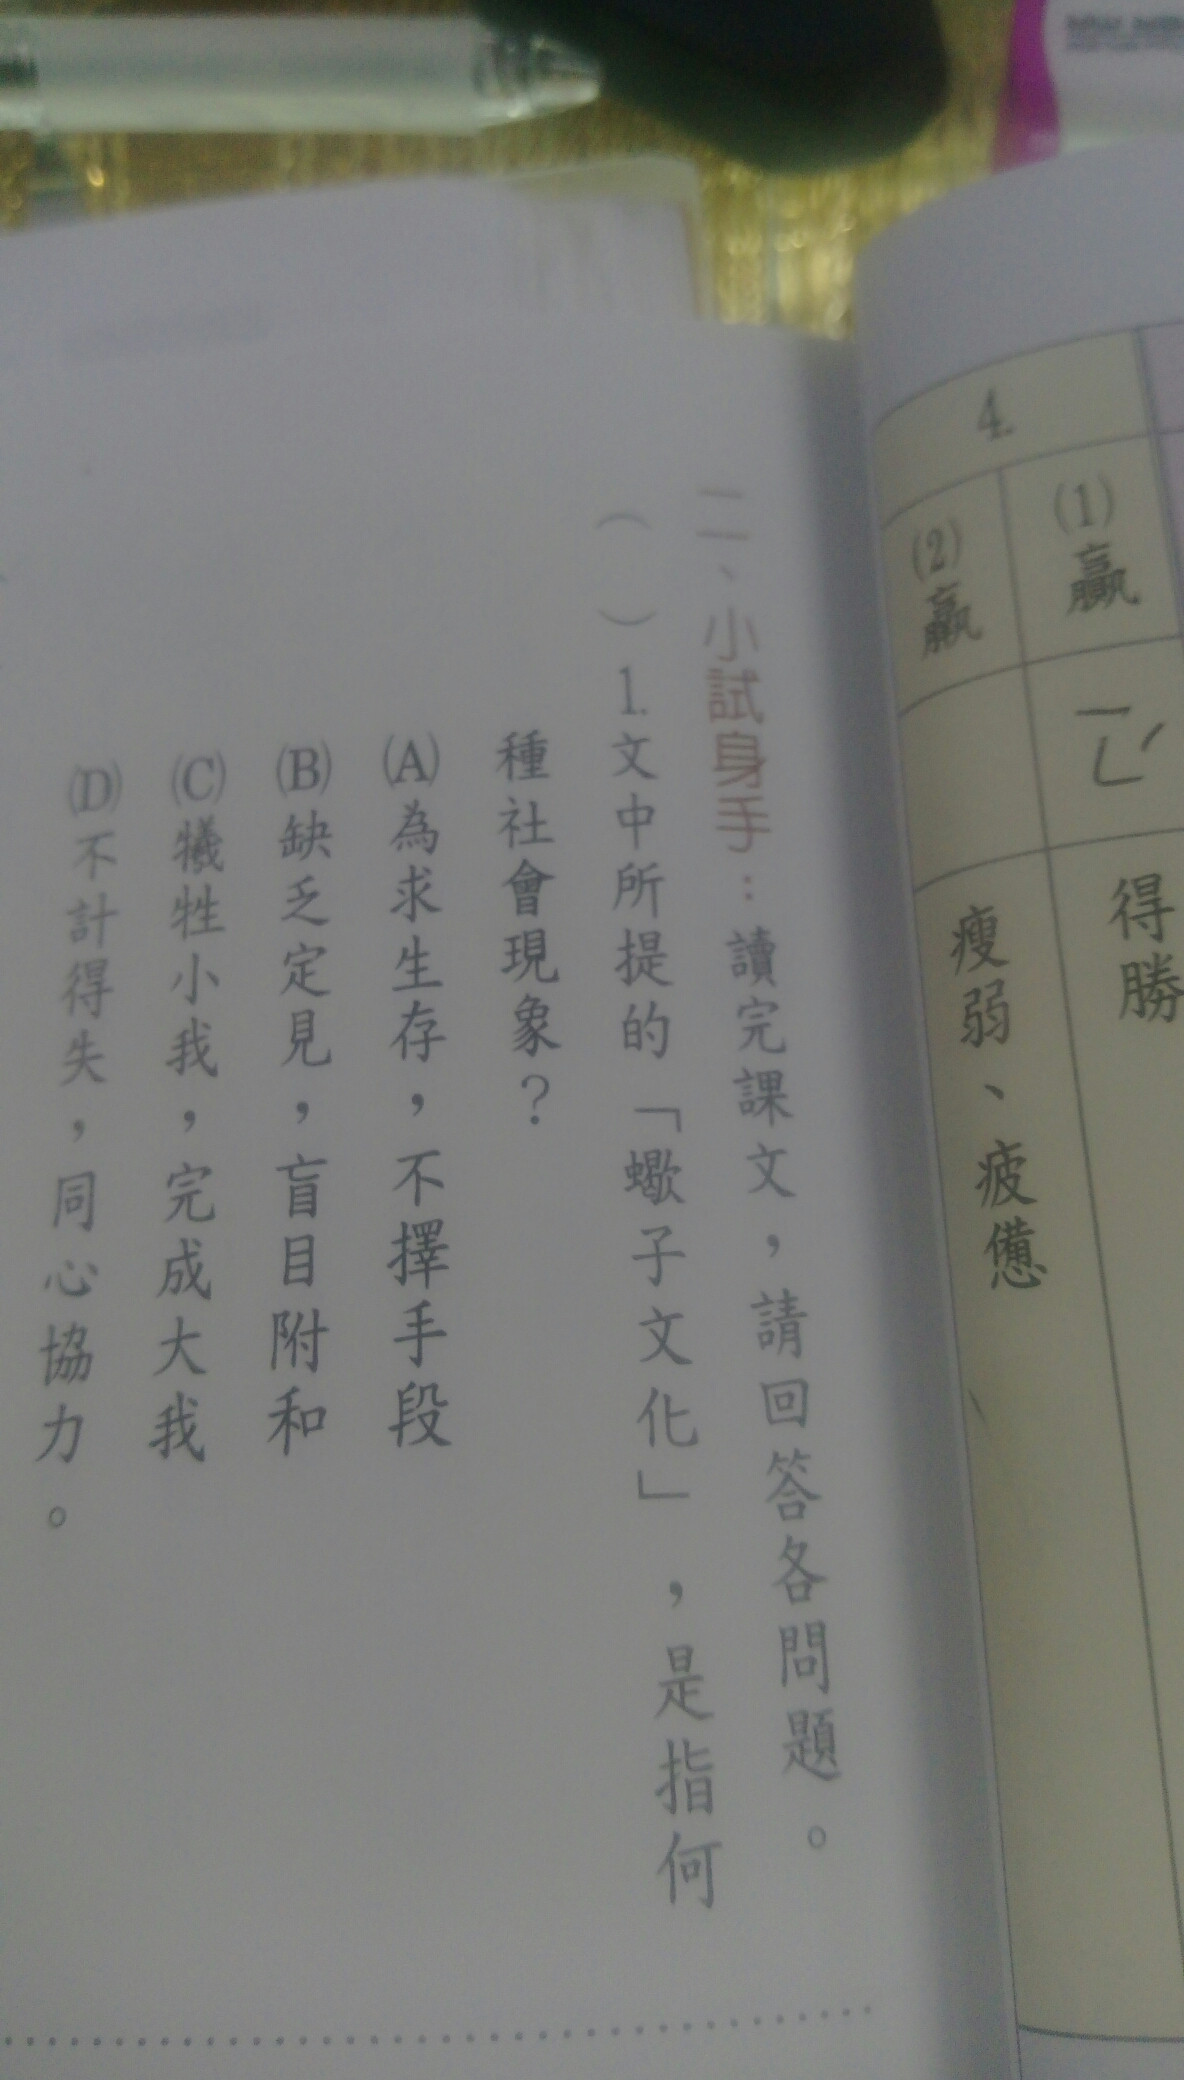 4.
(1)贏
得勝
(2)羸
瘦弱、疲憊
二、小試身手：讀完課文，請回答各問題。
（　）1.文中所提的「蠍子文化」，是指何
種社會現象？
(A)為求生存，不擇手段
(B)缺乏定見，盲目附和
(C)犧牲小我，完成大我
(D)不計得失，同心協力。